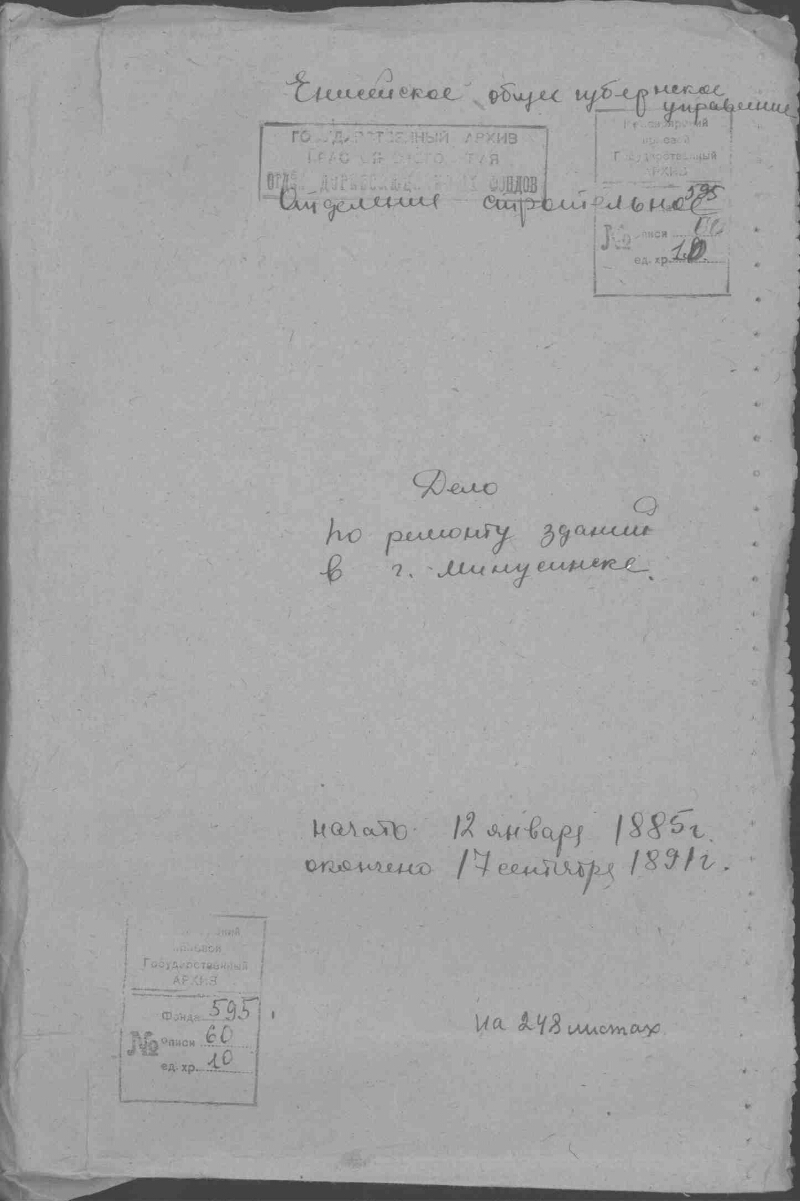 Енисейское общее губернское
управление
ГОСУДАРСТВЕННЫЙ АРХИВ
КРАСНОЯРСКОГО КРАЯ
ОТДЕЛ ДОРЕВОЛЮЦИОННЫХ ФОНДОВ
Красноярский
краевой
Государственный
АРХИВ
595
№ описи 60
ед. хр. 10
Отделение строительное
Дело
по ремонту зданий
в г. Минусинске.
начато 12 января 1885 г.
окончено 17 сентября 1891 г.
Красноярский
краевой
Государственный
АРХИВ
Фонда 595
№ описи 60
ед. хр. 10
на 248 листах